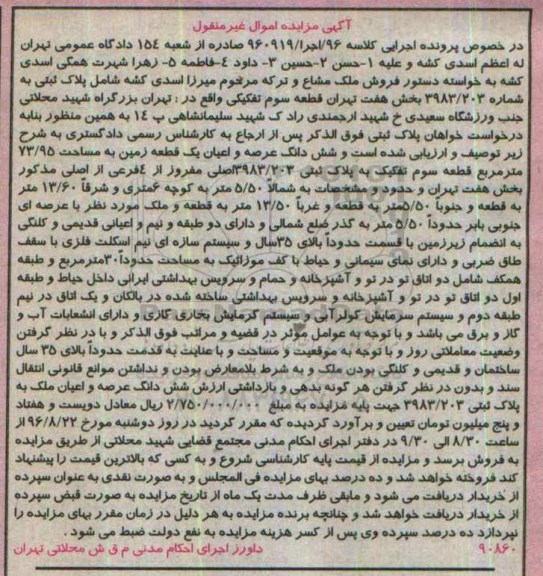 آگهی مزایده اموال غیرمنقول
در خصوص پرونده اجرایی کلاسه ۹۶/اجرا/۹۶۰۹۱۹ صادره از شعبه ۱۵۴ دادگاه عمومی تهران
له اعظم اسدی کشه و علیه ۱-حسن ۲-حسین ۳- داود ۴-فاطمه ۵- زهرا شهرت همگی اسدی
کشه به خواسته دستور فروش ملک مشاع و ترکه مرحوم میرزا اسدی کشه شامل پلاک ثبتی به
شماره ۳۹۸۳/۲۰۳ بخش هفت تهران قطعه سوم تفکیکی واقع در : تهران بزرگراه شهید محلاتی
جنب ورزشگاه سعیدی خ شهید ارجمندی راد ک شهید سلیمانشاهی پ ۱۴ به همین منظور بنابه
درخواست خواهان پلاک ثبتی فوق الذکر پس از ارجاع به کارشناس رسمی دادگستری به شرح
زیر توصیف و ارزیابی شده است و شش دانگ عرصه و اعیان یک قطعه زمین به مساحت ۷۳/۹۵
مترمربع قطعه سوم تفکیک به پلاک ثبتی ۳۹۸۳/۲۰۳اصلی مفروز از ۴فرعی از اصلی مذکور
بخش هفت تهران و حدود و مشخصات به شمالاً ۵/۵۰ متر به کوچه ۶متری و شرقاً ۱۳/۶۰ متر
به قطعه و جنوباً ۵/۵۰متر به قطعه و غرباً ۱۳/۵۰ متر به قطعه و ملک مورد نظر با عرصه ای
جنوبی بابر حدوداً ۵/۵۰ متر به گذر ضلع شمالی و دارای دو طبقه و نیم و اعیانی قدیمی و کلنگی
به انضمام زیرزمین با قسمت حدوداً بالای ۳۵سال و سیستم سازه ای نیم اسکلت فلزی با سقف
طاق ضربی و دارای نمای سیمانی و حیاط با کف موزائیک به مساحت حدوداً ۳۰مترمربع و طبقه
همکف شامل دو اتاق تو در تو و آشپزخانه و حمام و سرویس بهداشتی ایرانی داخل حیاط و طبقه
اول دو اتاق تو در تو و آشپزخانه و سرویس بهداشتی ساخته شده در بالکان و یک اتاق در نیم
طبقه دوم و سیستم سرمایش کولرآبی و سیستم گرمایش بخاری گازی و دارای انشعابات آب و
گاز و برق می باشد و با توجه به عوامل موثر در قضیه و مراتب فوق الذکر و با در نظر گرفتن
وضعیت معاملاتی روز و با توجه به موقعیت و مساحت و با عنایت به قدمت حدوداً بالای ۳۵ سال
ساختمان و قدیمی و کلنگی بودن ملک و به شرط بلامعارض بودن و نداشتن موانع قانونی انتقال
سند و بدون در نظر گرفتن هر گونه بدهی و بازداشتی ارزش شش دانگ عرصه و اعیان ملک به
پلاک ثبتی ۳۹۸۳/۲۰۳ جهت پایه مزایده به مبلغ ۲/۷۵۰/۰۰۰/۰۰۰ ریال معادل دویست و هفتاد
و پنج میلیون تومان تعیین و برآورد گردیده که مقرر گردید در روز دوشنبه مورخ ۹۶/۸/۲۲ از
ساعت ۸/۳۰ الی ۹/۳۰ در دفتر اجرای احکام مدنی مجتمع قضایی شهید محلاتی از طریق مزایده
به فروش برسد و مزایده از قیمت پایه کارشناسی شروع و به کسی که بالاترین قیمت را پیشنهاد
کند فروخته خواهد شد و ده درصد بهای مزایده فی المجلس و به صورت نقدی به عنوان سپرده
از خریدار دریافت می شود و مابقی ظرف مدت یک ماه از تاریخ مزایده به صورت قبض سپرده
از خریدار دریافت خواهد شد و چنانچه برنده مزایده به هر دلیل در زمان مقرر بهای مزایده را
نپردازد ده درصد سپرده وی پس از کسر هزینه مزایده به نفع دولت ضبط می شود .
۹۰۸۶۰ داورز اجرای احکام مدنی م ق ش محلاتی تهران